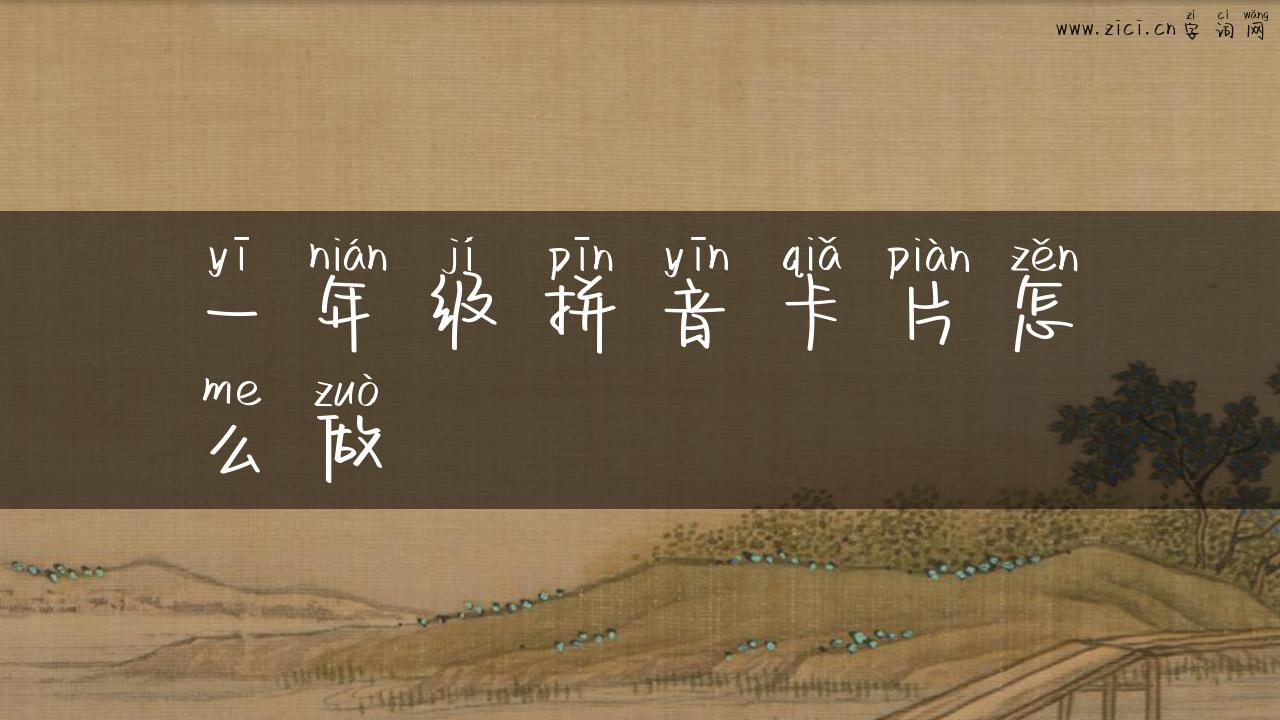 zì cí wǎng
www.zici.cn字词网
yī nián jí pīn yīn qiǎ piàn zěn
一年级拼音卡片怎
me zuò
么做